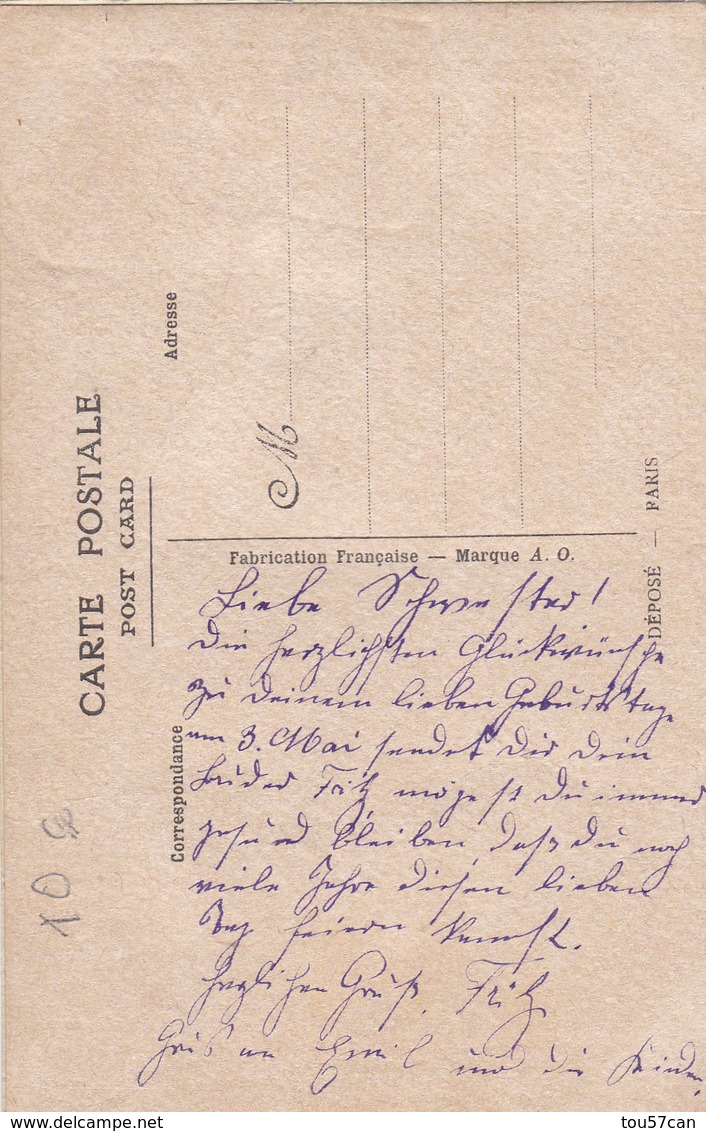 CARTE POSTALE
POST CARD
Adresse
M
Fabrication Française — Marque A. O.
DÉPOSÉ — PARIS
Correspondance
Liebe Schwester!
Die herzlichsten Glückwünsche
zu deinem lieben Geburtstage
am 3. Mai sendet Dir Dein
Bruder Fritz mögest Du immer
gesund bleiben daß du noch
viele Jahre diesen lieben
Tag feiern kannst.
Herzlichen Gruß. Fritz
Gruß an Emil und die Kinder.
10
tou57can